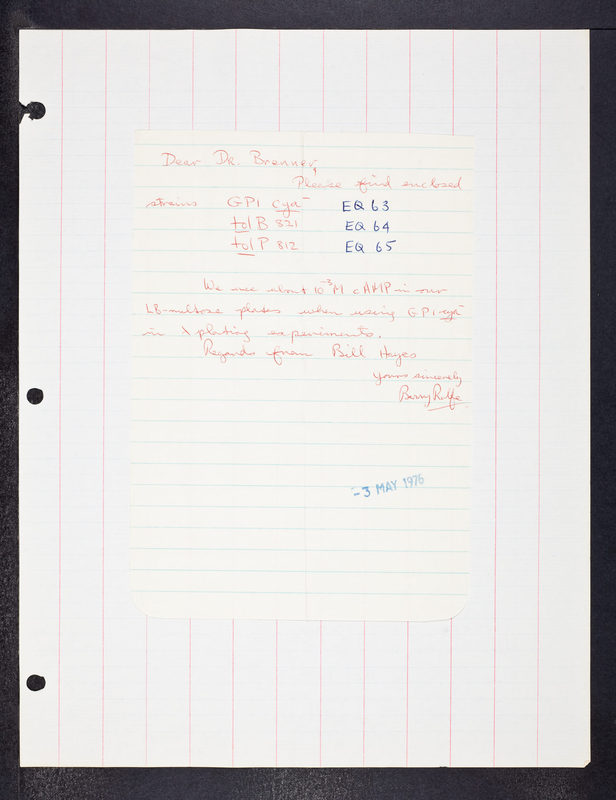 Dear Dr. Brenner,
Please find enclosed
strains GP1 cya⁻ EQ 63
tol B 821 EQ 64
tol P 812 EQ 65
We use about 10⁻³M cAMP in our
LB-maltose plates when using GP1 cya⁻
in λ plating experiments.
Regards from Bill Hayes
Yours sincerely
Barry Rolfe
-3 MAY 1976